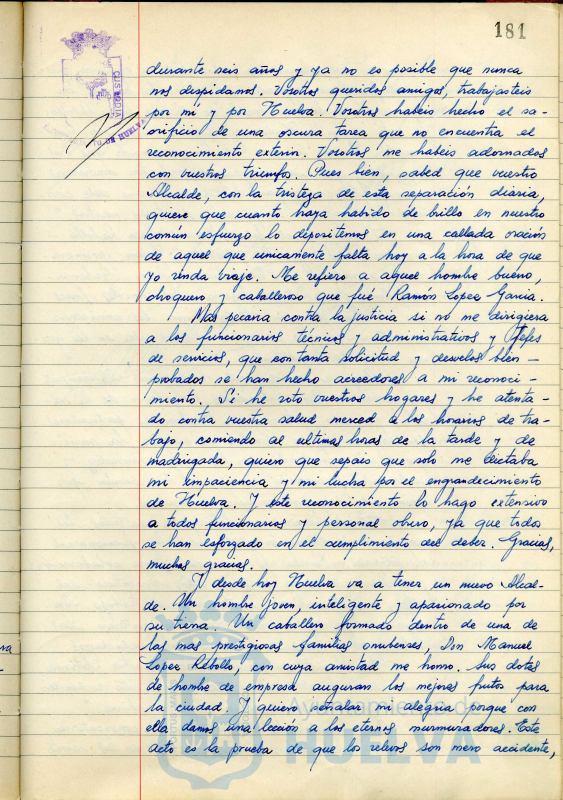 181
CUSTODIA
DE HUELVA
durante seis años y ya no es posible que nunca
nos despidamos. Vosotros queridos amigos, trabajasteis
por mí y por Huelva. Vosotros habéis hecho el sa-
crificio de una oscura tarea que no encuentra el
reconocimiento exterior. Vosotros me habéis adornados
con vuestros triunfos. Pues bien, sabed que vuestro
Alcalde, con la tristeza de esta separación diaria,
quiere que cuanto haya habido de brillo en nuestro
común esfuerzo lo depositemos en una callada oración
de aquel que unicamente falta hoy a la hora de que
yo rinda viaje. Me refiero a aquel hombre bueno,
choquero y caballeroso que fué Ramón Lopez Garcia.
Mas pecaria contra la justicia si no me dirigiera
a los funcionarios técnicos y administrativos y Jefes
de servicios, que con tanta solicitud y desvelos bien-
probados se han hecho acreedores a mi reconoci-
miento. Si he roto vuestros hogares y he atenta-
do contra vuestra salud merced a los horarios de tra-
bajo, comiendo a ultimas horas de la tarde y de
madrugada, quiero que sepais que solo me dictaba
mi impaciencia y mi lucha por el engrandecimiento
de Huelva. Y este reconocimiento lo hago extensivo
a todos funcionarios y personal obrero, ya que todos
se han esforzado en el cumplimiento del deber. Gracias,
muchas gracias.
Y desde hoy Huelva va a tener un nuevo Alcal-
de. Un hombre joven, inteligente y apasionado por
su tierra. Un caballero formado dentro de una de
las mas prestigiosas familias onubenses, Don Manuel
Lopez Rebollo, con cuya amistad me honro. Sus dotes
de hombre de empresa auguran los mejores frutos para
la ciudad. Y quiero señalar mi alegria porque con
ella damos una lección a los eternos murmuradores. Este
acto es la prueba de que los relevos son mero accidente,
Ayuntamiento de
HUELVA